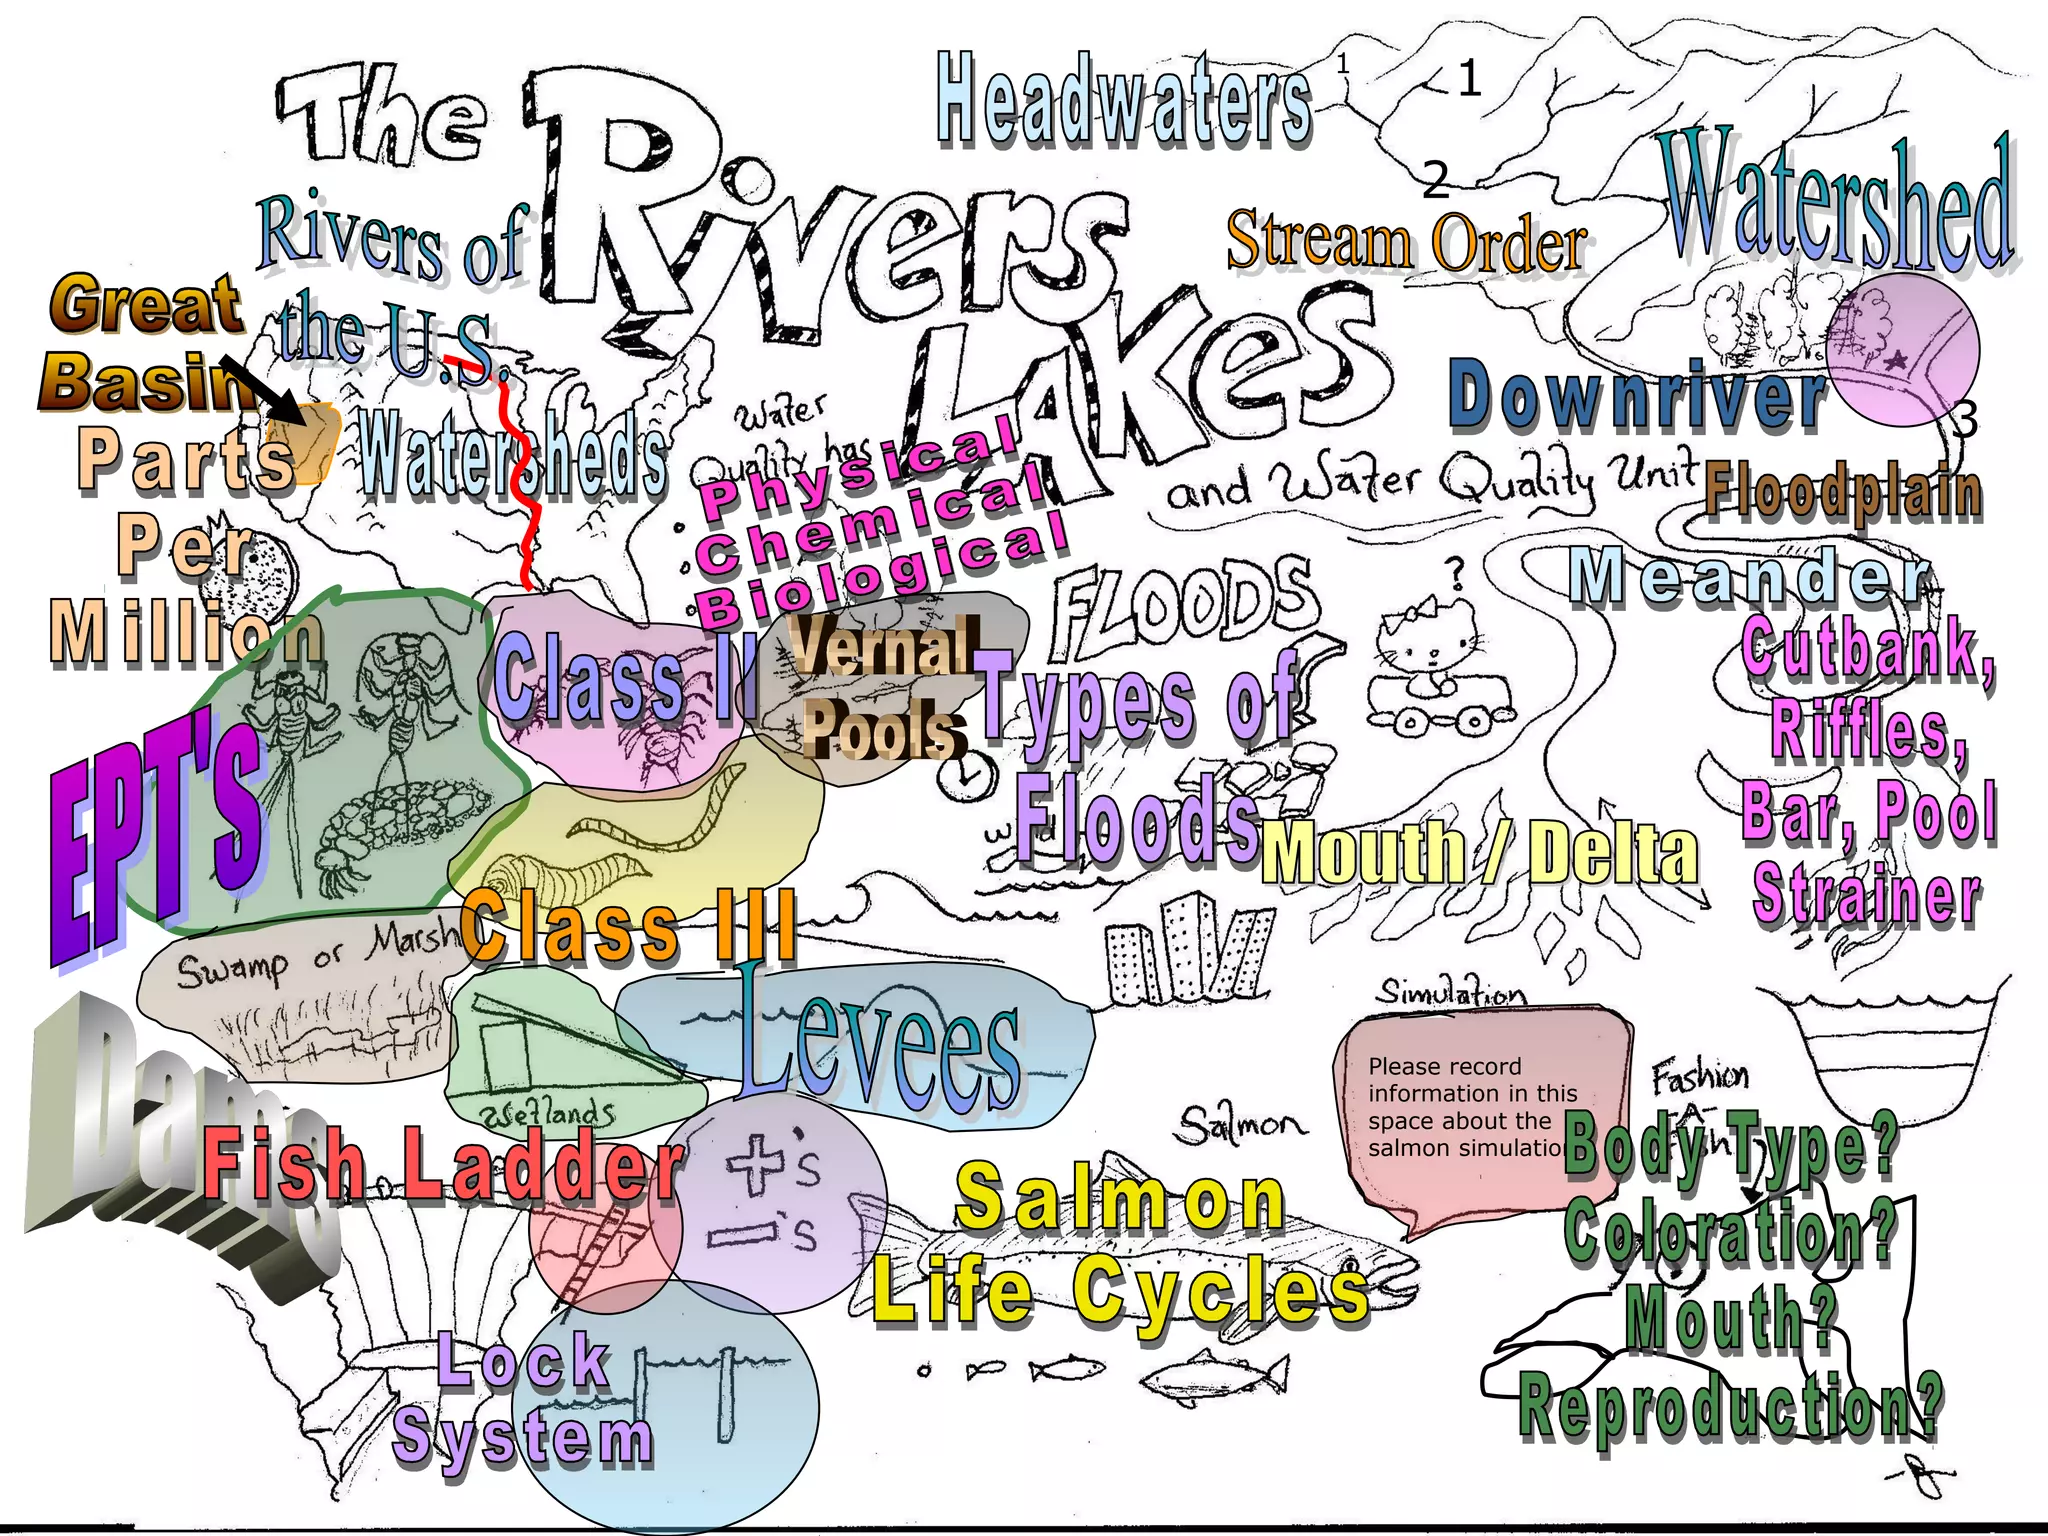 The
Rivers
Lakes
and Water Quality Unit
Headwaters
1
1
2
3
Watershed
Stream Order
Rivers of
the U.S.
Great
Basin
Watersheds
Parts
Per
Million
Water
Quality has
Physical
Chemical
Biological
Downriver
Floodplain
Meander
Cutbank,
Riffles,
Bar, Pool
Strainer
FLOODS
?
Types of
Floods
Mouth / Delta
Vernal
Pools
Class II
EPT's
Class III
Swamp or Marsh
Wetlands
Levees
Dams
Fish Ladder
+'s
-'s
Lock
System
Salmon
Salmon
Life Cycles
Simulation
Please record
information in this
space about the
salmon simulation
Fashion
-A-
Fish
Body Type?
Coloration?
Mouth?
Reproduction?